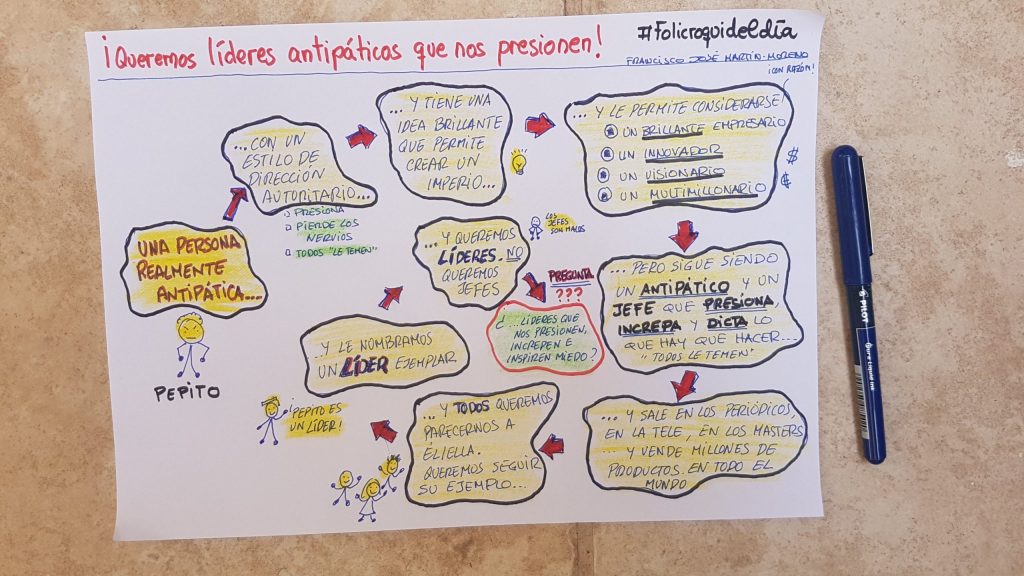 ¡Queremos líderes antipáticos que nos presionen!
#Folicroquideldía
FRANCISCO JOSÉ MARTÍN-MORENO
¡CON RAZÓN!
UNA PERSONA
REALMENTE
ANTIPÁTICA....
PEPITO
...CON UN
ESTILO DE
DIRECCIÓN
AUTORITARIO...
PRESIONA
PIERDE LOS
NERVIOS
TODOS "LE TEMEN"
...Y TIENE UNA
IDEA BRILLANTE
QUE PERMITE
CREAR UN
IMPERIO...
...Y LE PERMITE CONSIDERARSE!
UN BRILLANTE EMPRESARIO
UN INNOVADOR
UN VISIONARIO
UN MULTIMILLONARIO
$
$
... PERO SIGUE SIENDO
UN ANTIPÁTICO Y UN
JEFE QUE PRESIONA,
INCREPA Y DICTA LO
QUE HAY QUE HACER...
"TODOS LE TEMEN"
... Y SALE EN LOS PERIÓDICOS,
EN LA TELE, EN LOS MASTERS
... Y VENDE MILLONES DE
PRODUCTOS EN TODO EL
MUNDO
... Y TODOS QUEREMOS
PARECERNOS A
ÉL/ELLA.
QUEREMOS SEGUIR
SU EJEMPLO...
¡PEPITO ES
UN LÍDER!
...Y LE NOMBRAMOS
UN LÍDER EJEMPLAR
... Y QUEREMOS
LÍDERES. NO
QUEREMOS
JEFES
LOS
JEFES
SON MALOS
PREGUNTA
???
¿...LÍDERES QUE
NOS PRESIONEN,
INCREPEN E
INSPIREN MIEDO?
PILOT